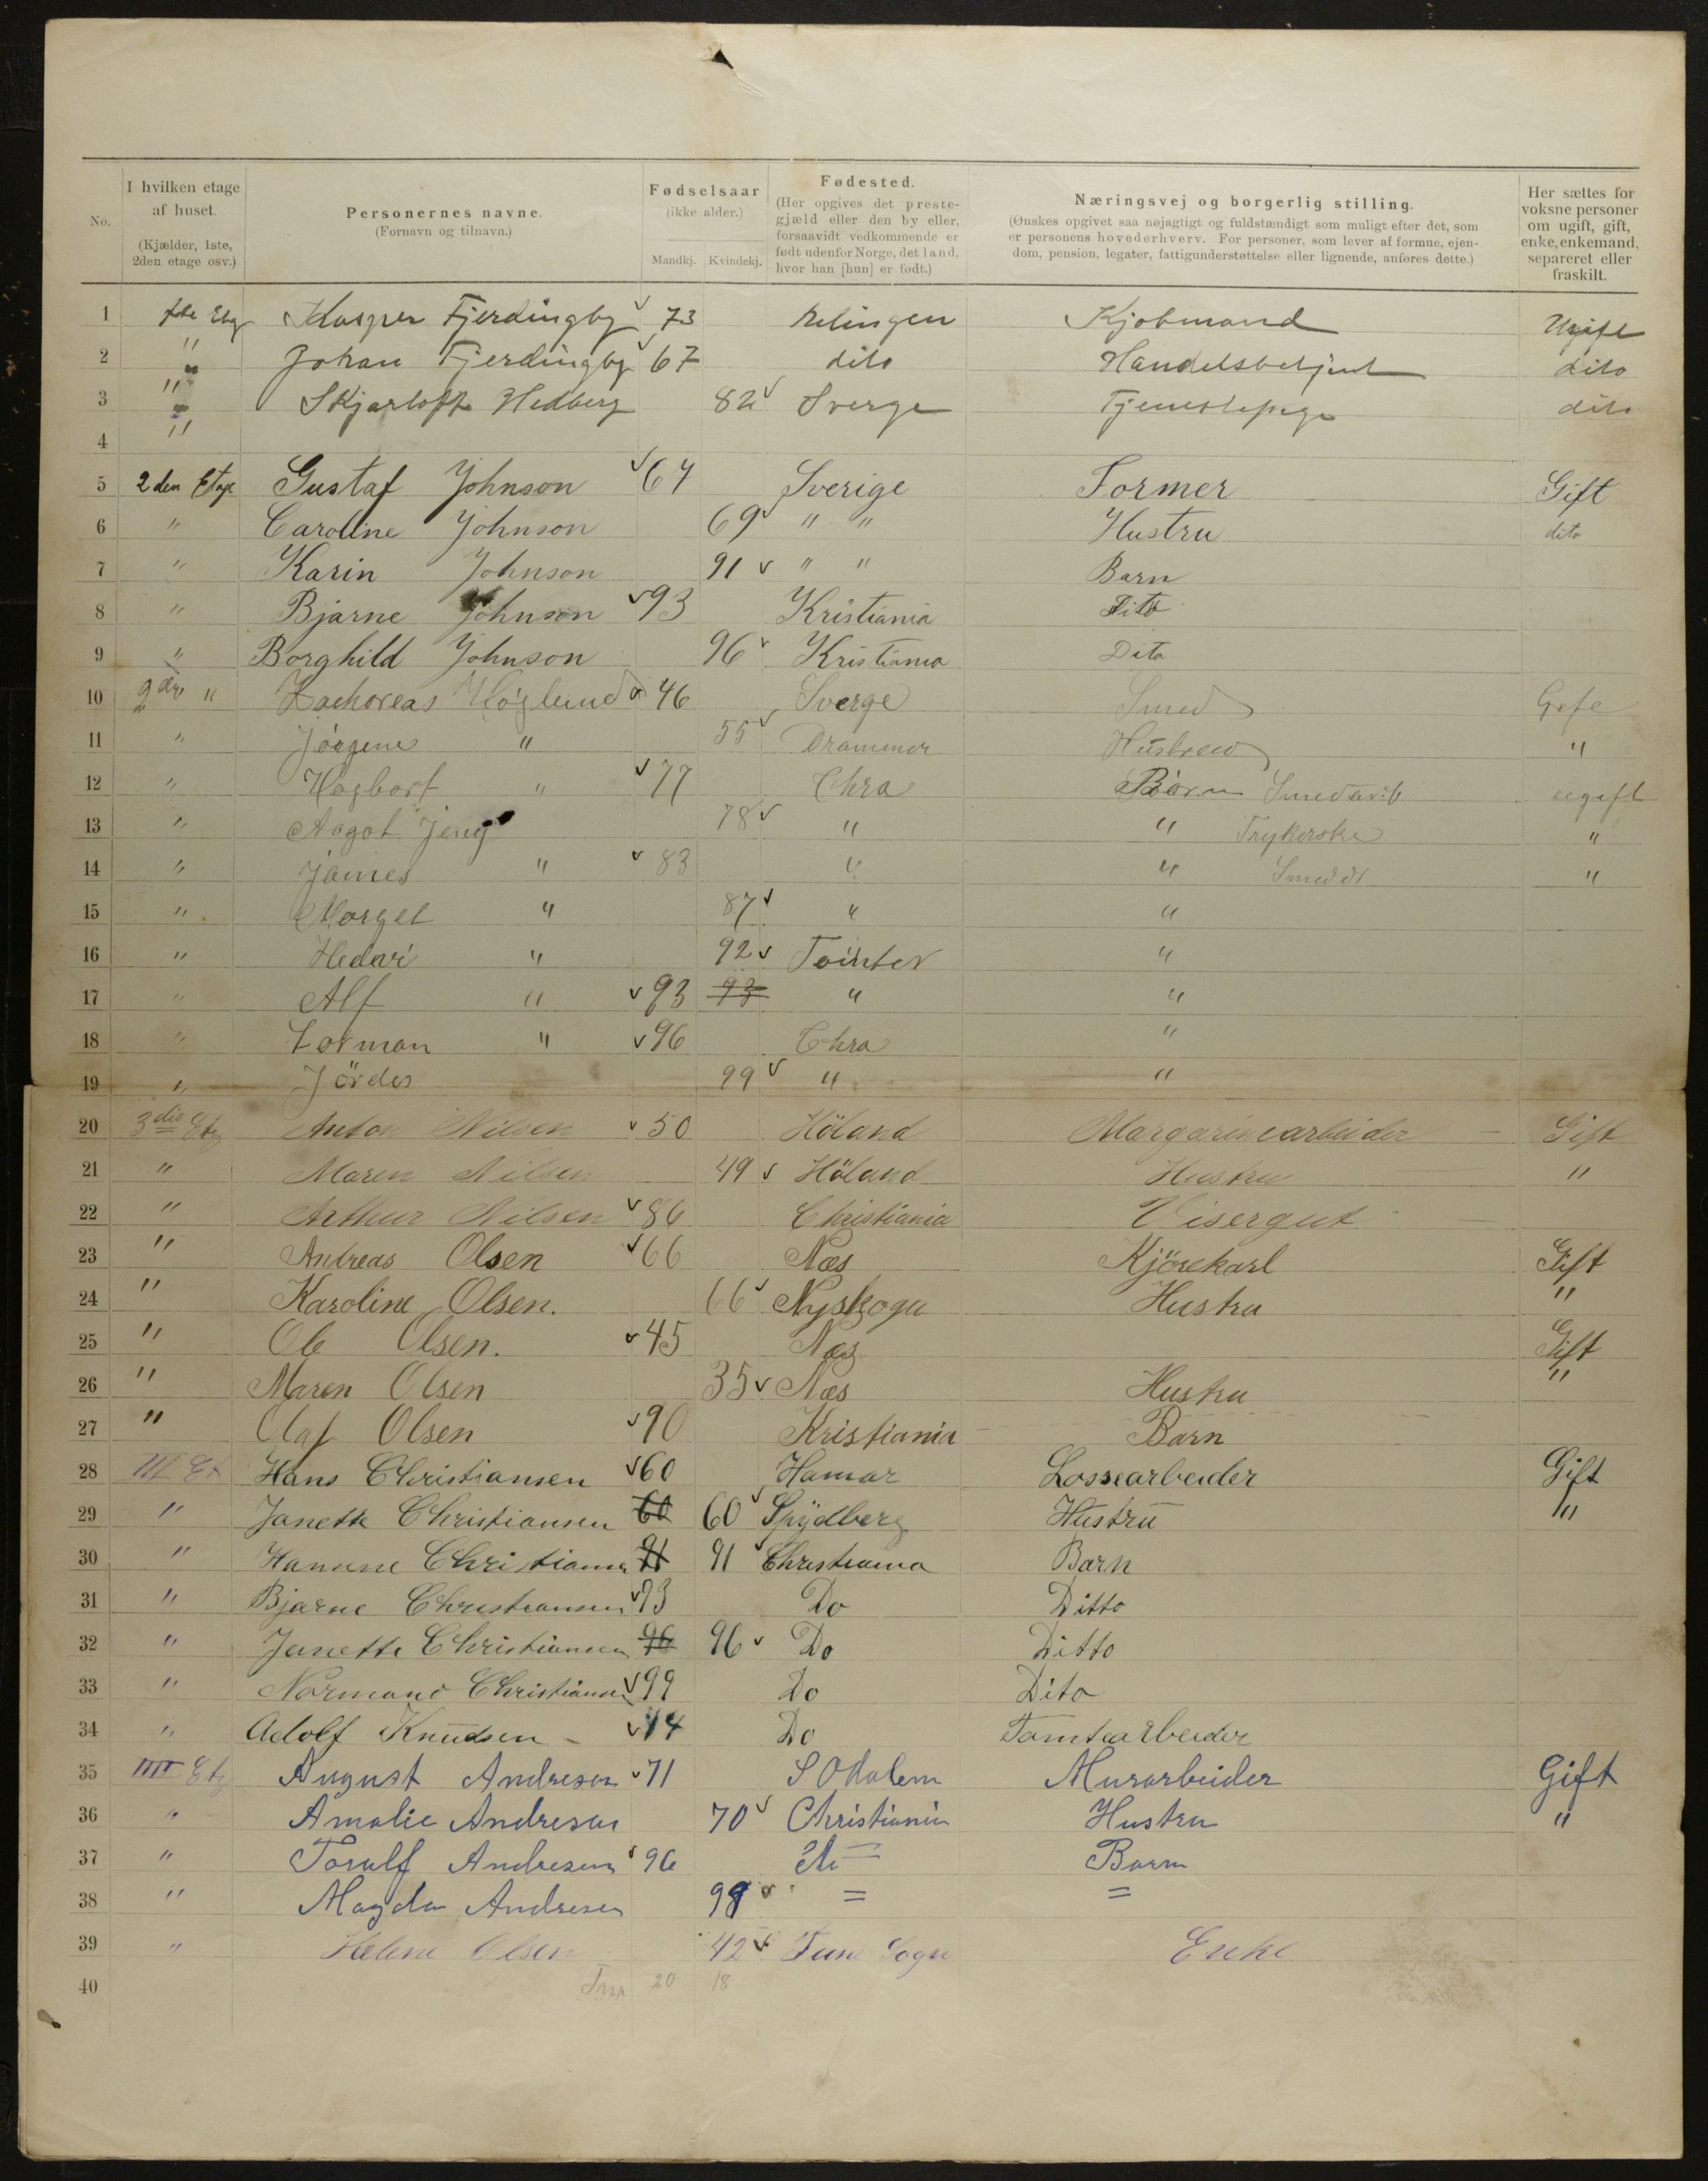 No. | I hvilken etage af huset. (Kjælder, 1ste, 2den etage osv.) | Personernes navne. (Fornavn og tilnavn.) | Fødselsaar (ikke alder.) Mandkj. Kvindekj. | Fødested. (Her opgives det prestegjæld eller den by eller, forsaavidt vedkommende er født udenfor Norge, det land, hvor han [hun] er født.) | Næringsvej og borgerlig stilling. (Ønskes opgivet saa nøjagtigt og fuldstændigt som muligt efter det, som er personens hovederhverv. For personer, som lever af formue, ejendom, pension, legater, fattigunderstøttelse eller lignende, anføres dette.) | Her sættes for voksne personer om ugift, gift, enke, enkemand, separeret eller fraskilt.
1 Kasper Fjerdingby 73 Relingen Kjobmand Ugift
2 " Johan Fjerdingby 67 dito Handelsbetjent dito
3 " Hedberg 82 Sverge dito
4 "
5 2den Etage Gustaf Johnson 67 Sverige Former Gift
6 " Caroline Johnson 69 " " Hustru dito
7 " Karin Johnson 91 " " Barn
8 " Bjarne Johnson 93 Kristiania Dito
9 " Borghild Johnson 96 Kristiania Dito
10 2den " Zachoreas Höglund 46 Sverge Smed Gefe
11 " Jörgene " 55 Drammer Hustrew "
12 " Hagbart " 77 Chra Börn Smedarb eegift
13 " Aagot Jeny 78 " " Trykerske "
14 " James " 83 " " "
15 " Marget " 87 " "
16 " 92 "
17 " Alf " 93 93 " "
18 " " 96 Chra "
19 " Jördes 99 " "
20 3die Etg Anton Nilsen 50 Höland Margarinearbeider Gift
21 " Maren Nilsen 49 Höland Hustru "
22 " Arthur Nilsen 86 Christiania Visergut
23 " Andreas Olsen 66 Næs Kjörekarl Gift
24 " Karoline Olsen. 66 Nyskoga Hustru "
25 " Ole Olsen. 45 Næs Gift
26 " Maren Olsen 35 Næs Hustru "
27 " Olaf Olsen 90 Kristiania Barn
28 III Et Hans Christiansen 60 Hamar Lossearbeider Gift
29 " Janette Christiansen 60 60 Spydberg Hustru "
30 " Christianse 91 91 Christiania Barn
31 " Bjarne Christiansen 93 Do Ditto
32 " Janette Christiansen 96 96 Do Ditto
33 " Normand Christianse 99 Do Dito
34 " Adolf Knudsen - 74 Do Tomtearbeider
35 IIII Etg August Andresen 71 S Odalen Murarbeider Gift
36 " Amalie Andresen 70 Christiania Hustru "
37 " Torulf Andresen 96 Barn
38 " Magda Andresen 98 = =
39 " Helene Olsen 42 Tune Sogn Enke
40 20 18